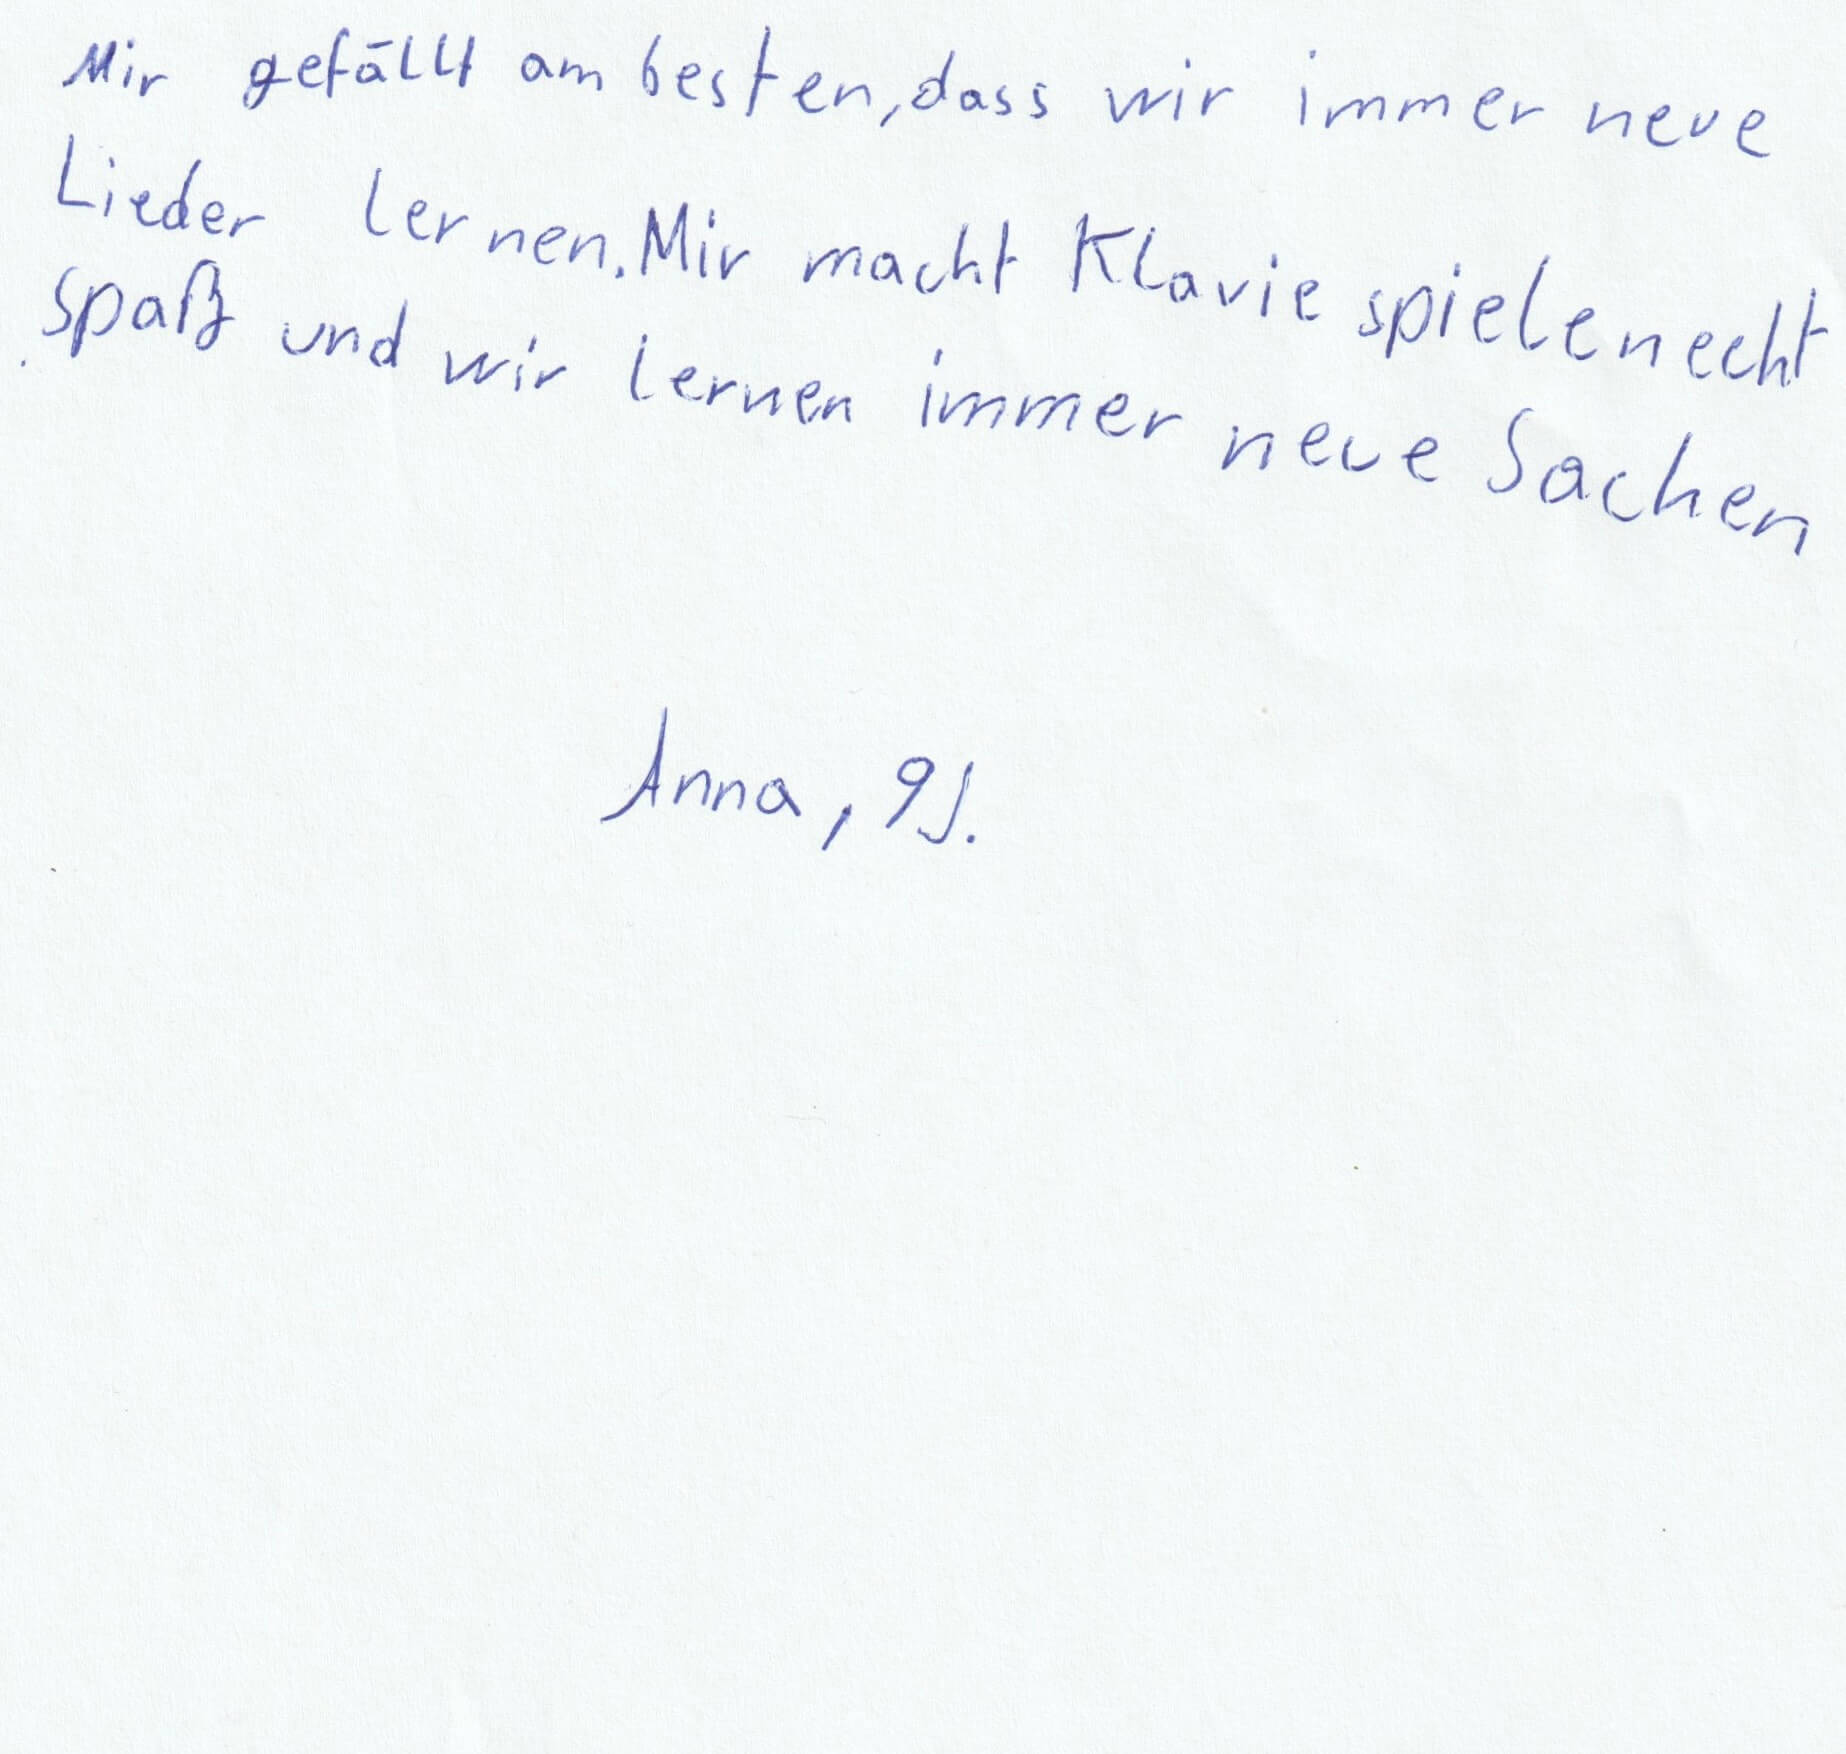 Mir gefällt am besten, dass wir immer neue
Lieder lernen. Mir macht Klavie spielen echt
spaß und wir lernen immer neue Sachen
Anna, 9J.